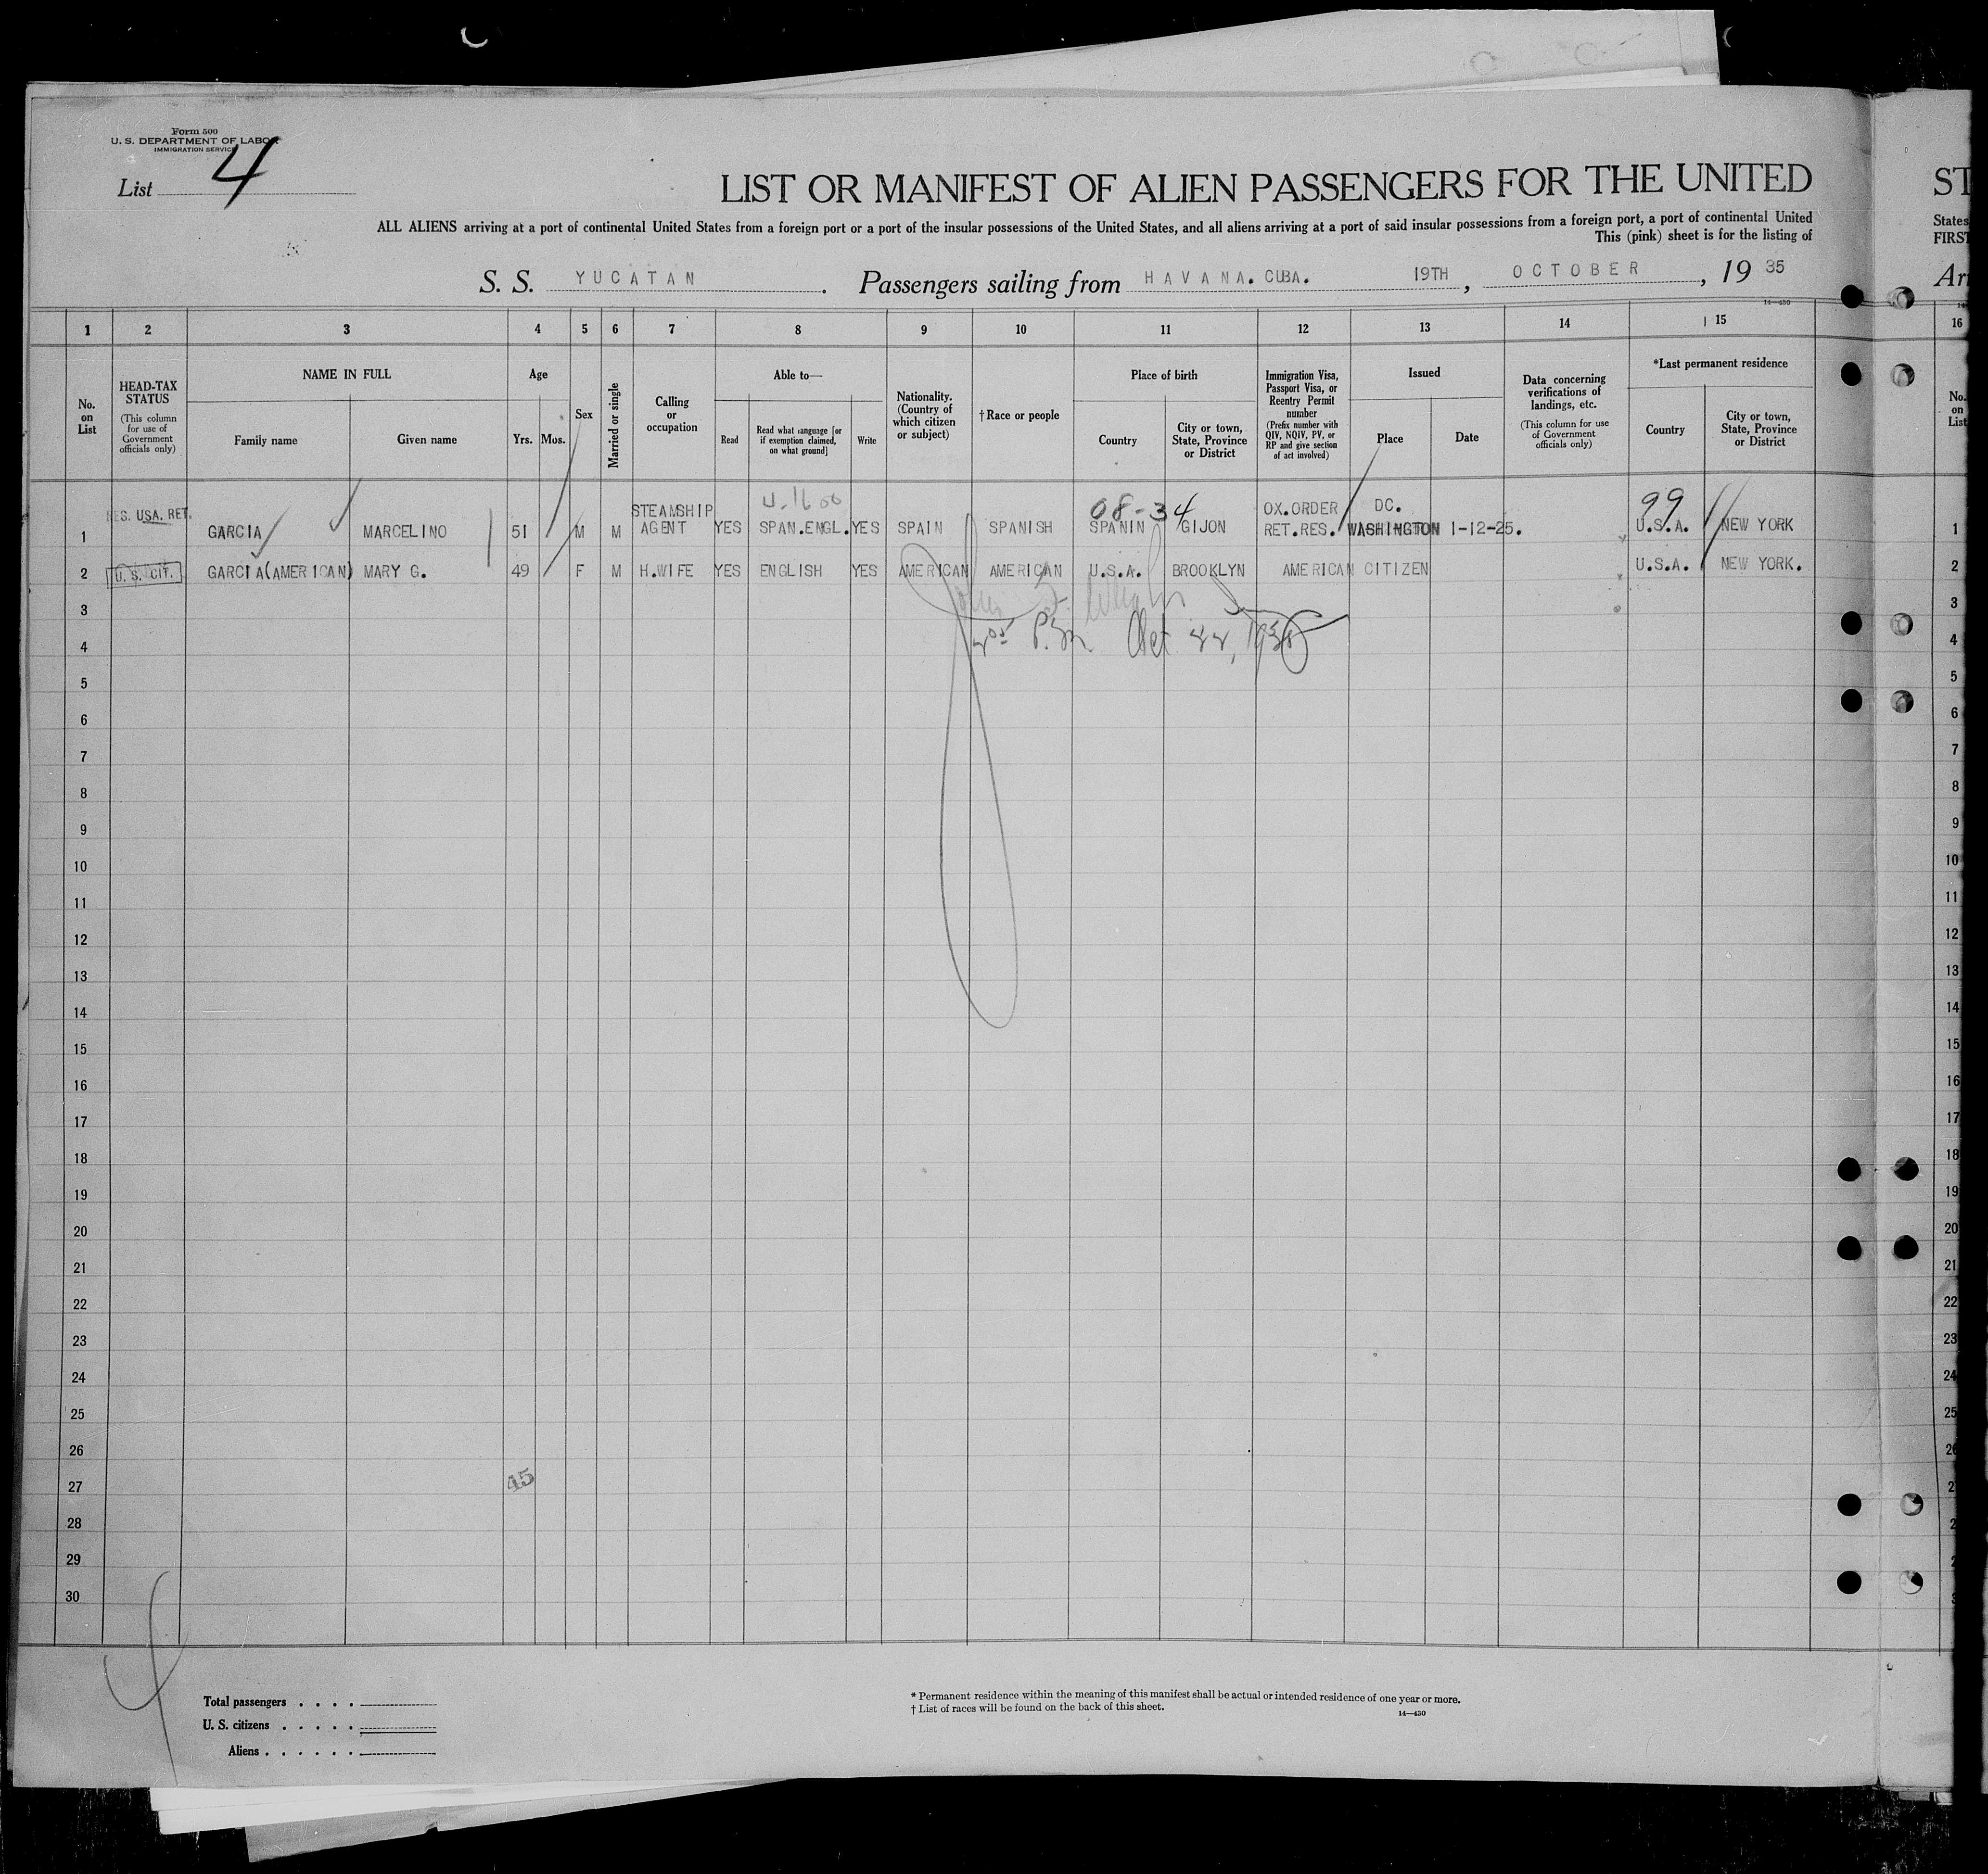 Form 500
U. S. DEPARTMENT OF LABOR
IMMIGRATION SERVICE
List 4
LIST OR MANIFEST OF ALIEN PASSENGERS FOR THE UNITED
ST
ALL ALIENS arriving at a port of continental United States from a foreign port or a port of the insular possessions of the United States, and all aliens arriving at a port of said insular possessions from a foreign port, a port of continental United
States
This (pink) sheet is for the listing of
FIRST
S. S. YUCATAN. Passengers sailing from HAVANA. CUBA. 19TH, OCTOBER, 19 35
14—430
1 2 3 4 5 6 7 8 9 10 11 12 13 14 15
16
No. on List
HEAD-TAX STATUS
(This column for use of Government officials only)
NAME IN FULL
Family name
Given name
Age
Yrs. Mos.
Sex
Married or single
Calling or occupation
Able to—
Read
Read what language [or if exemption claimed, on what ground]
Write
Nationality. (Country of which citizen or subject)
†Race or people
Place of birth
Country
City or town, State, Province or District
Immigration Visa, Passport Visa, or Reentry Permit number
(Prefix number with QIV, NQIV, PV, or RP and give section of act involved)
Issued
Place
Date
Data concerning verifications of landings, etc.
(This column for use of Government officials only)
*Last permanent residence
Country
City or town, State, Province or District
No. on List
08-34
99
1 RES. USA. RET. GARCIA MARCELINO 51 M M STEAMSHIP AGENT YES SPAN.ENGL. YES SPAIN SPANISH SPANIN GIJON OX.ORDER RET.RES. WASHINGTON DC. 1-12-25. U.S.A. NEW YORK 1
2 U. S. CIT. GARCIA(AMERICAN) MARY G. 49 F M H.WIFE YES ENGLISH YES AMERICAN AMERICAN U.S.A. BROOKLYN AMERICAN CITIZEN U.S.A. NEW YORK. 2
3 3
P.M. Oct 22, 1935
4 4
5 5
6 6
7 7
8 8
9 9
10 10
11 11
12 12
13 13
14 14
15 15
16 16
17 17
18 18
19 19
20 20
21 21
22 22
23 23
24 24
25 25
26
45
27
28
29
30
Total passengers . . . .
U. S. citizens . . . . .
Aliens . . . . . .
* Permanent residence within the meaning of this manifest shall be actual or intended residence of one year or more.
† List of races will be found on the back of this sheet.
14—430